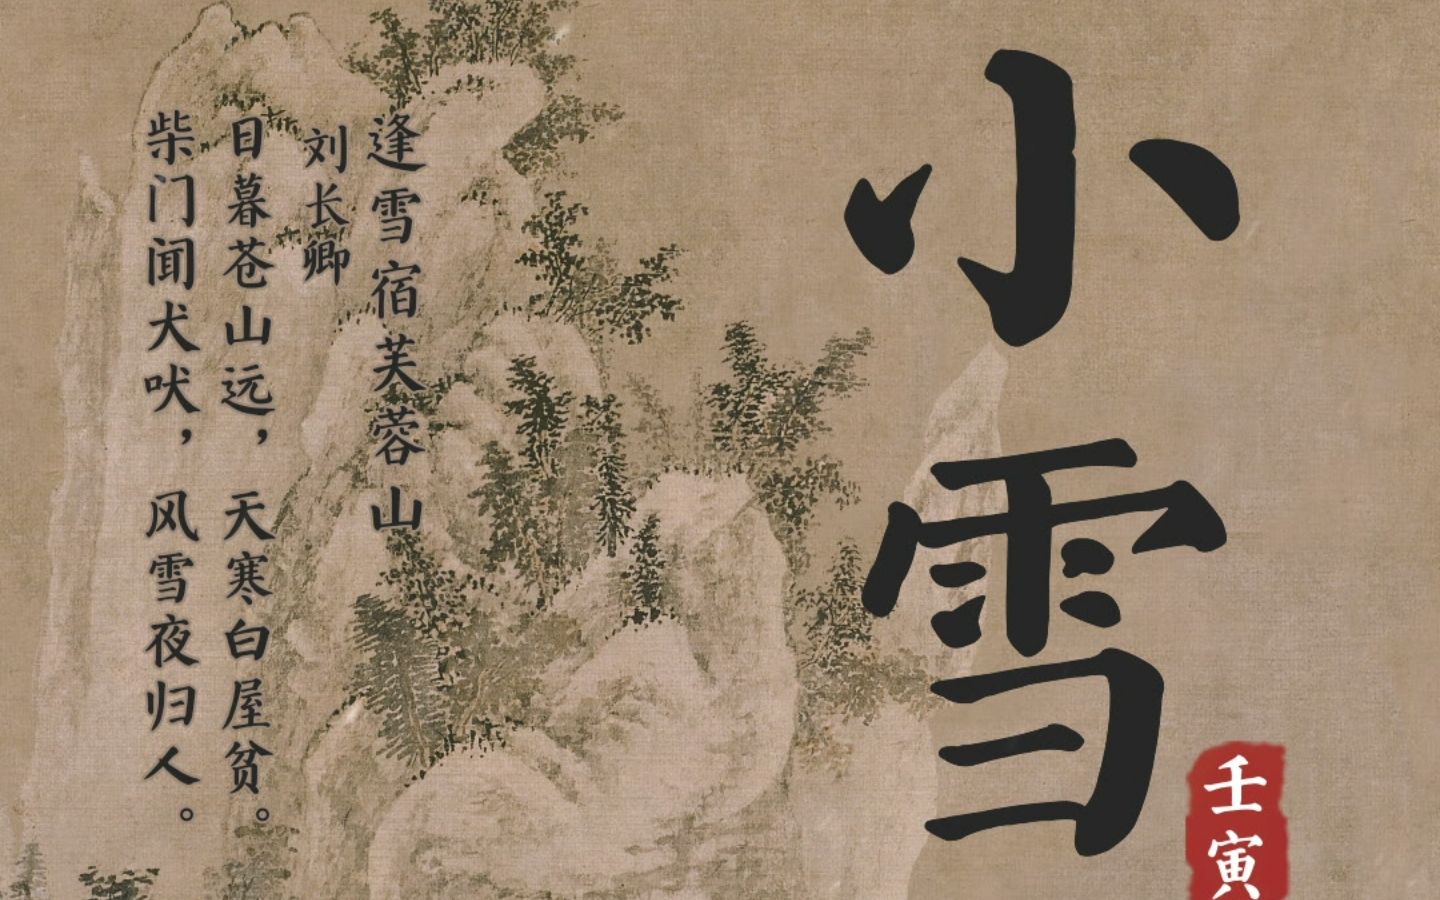 小雪
壬寅
逢雪宿芙蓉山
刘长卿
日暮苍山远，天寒白屋贫。
柴门闻犬吠，风雪夜归人。